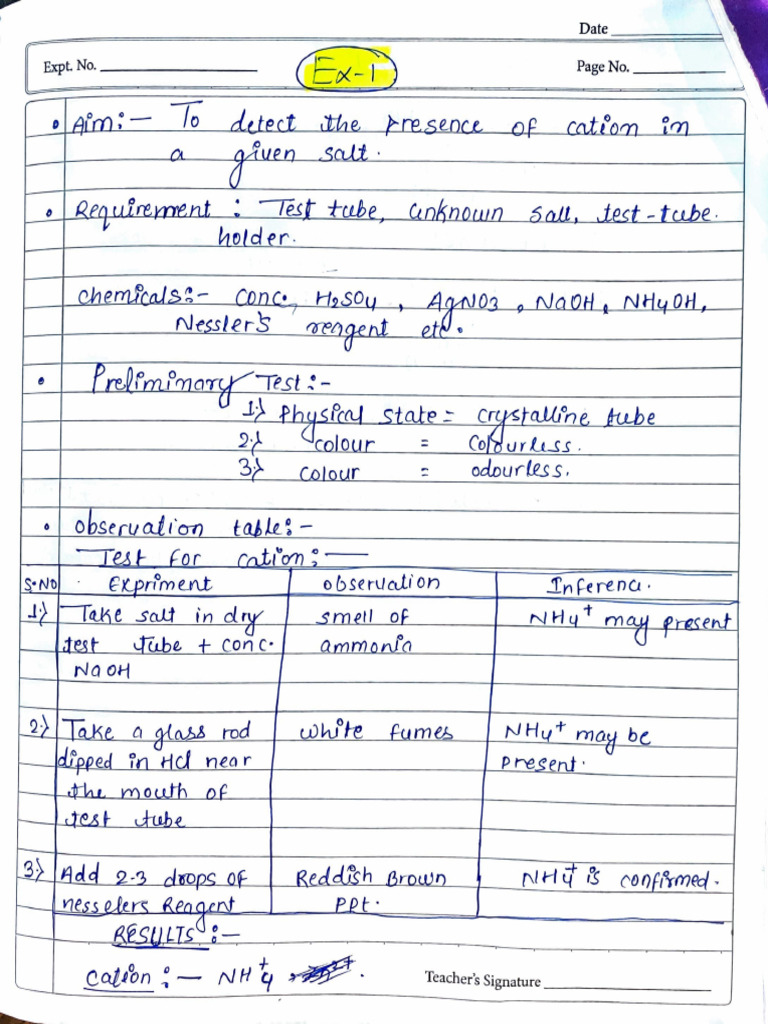 Date
Expt. No.
Ex-1
Page No.
• Aim:- To detect the presence of cation in
a given salt.
• Requirement : Test tube, unknown salt, test-tube.
holder.
chemicals:- conc., H2SO4, AgNO3, NaOH, NH4OH,
Nessler's reagent etc.
• Preliminary Test:-
1.) Physical state = crystalline tube
2.) colour = Colourless.
3.) colour = odourless.
• observation table:-
Test for cation:-
S.NO Expriment observation Inferenc.
1.) Take salt in dry smell of NH4+ may present
test tube + conc. ammonia
NaOH
2.) Take a glass rod white fumes NH4+ may be
dipped in HCl near present.
the mouth of
test tube
3.) Add 2-3 drops of Reddish Brown NH4+ is confirmed.
nesselers Reagent PPt.
RESULTS :-
Cation :- NH4+
Teacher's Signature